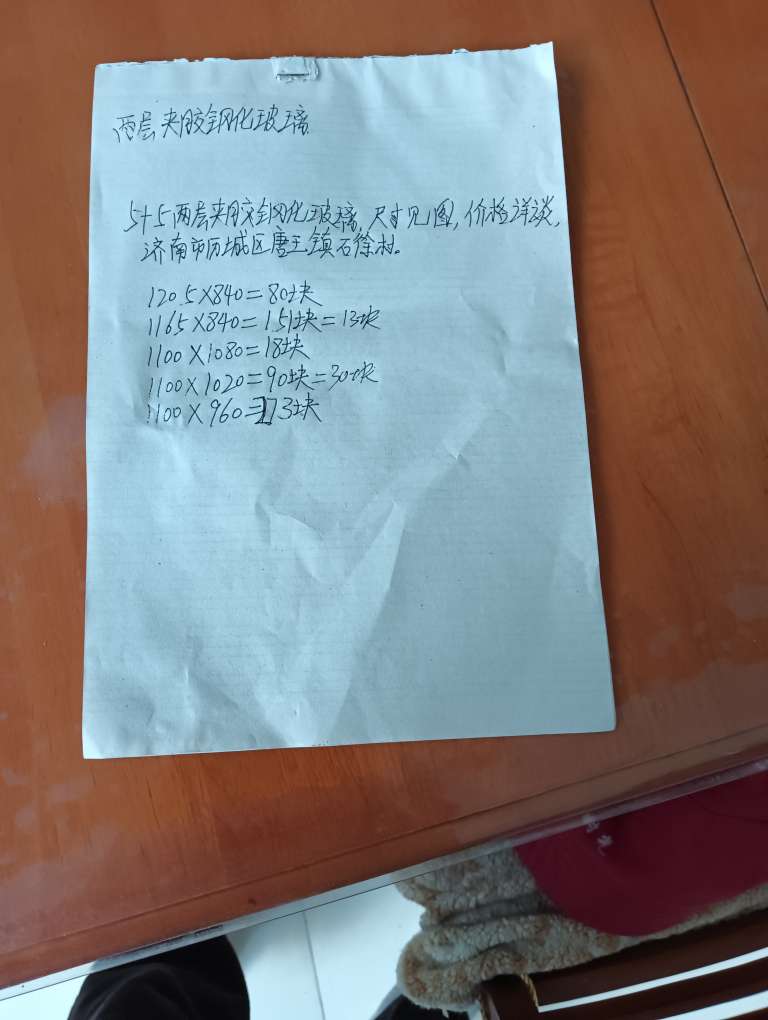 两层夹胶钢化玻璃
5+5两层夹胶钢化玻璃,尺寸见图,价格详谈,
济南市历城区唐王镇石徐村。
1205×840=80块
1165×840=151块=13块
1100×1080=18块
1100×1020=90块=30块
1100×960=173块